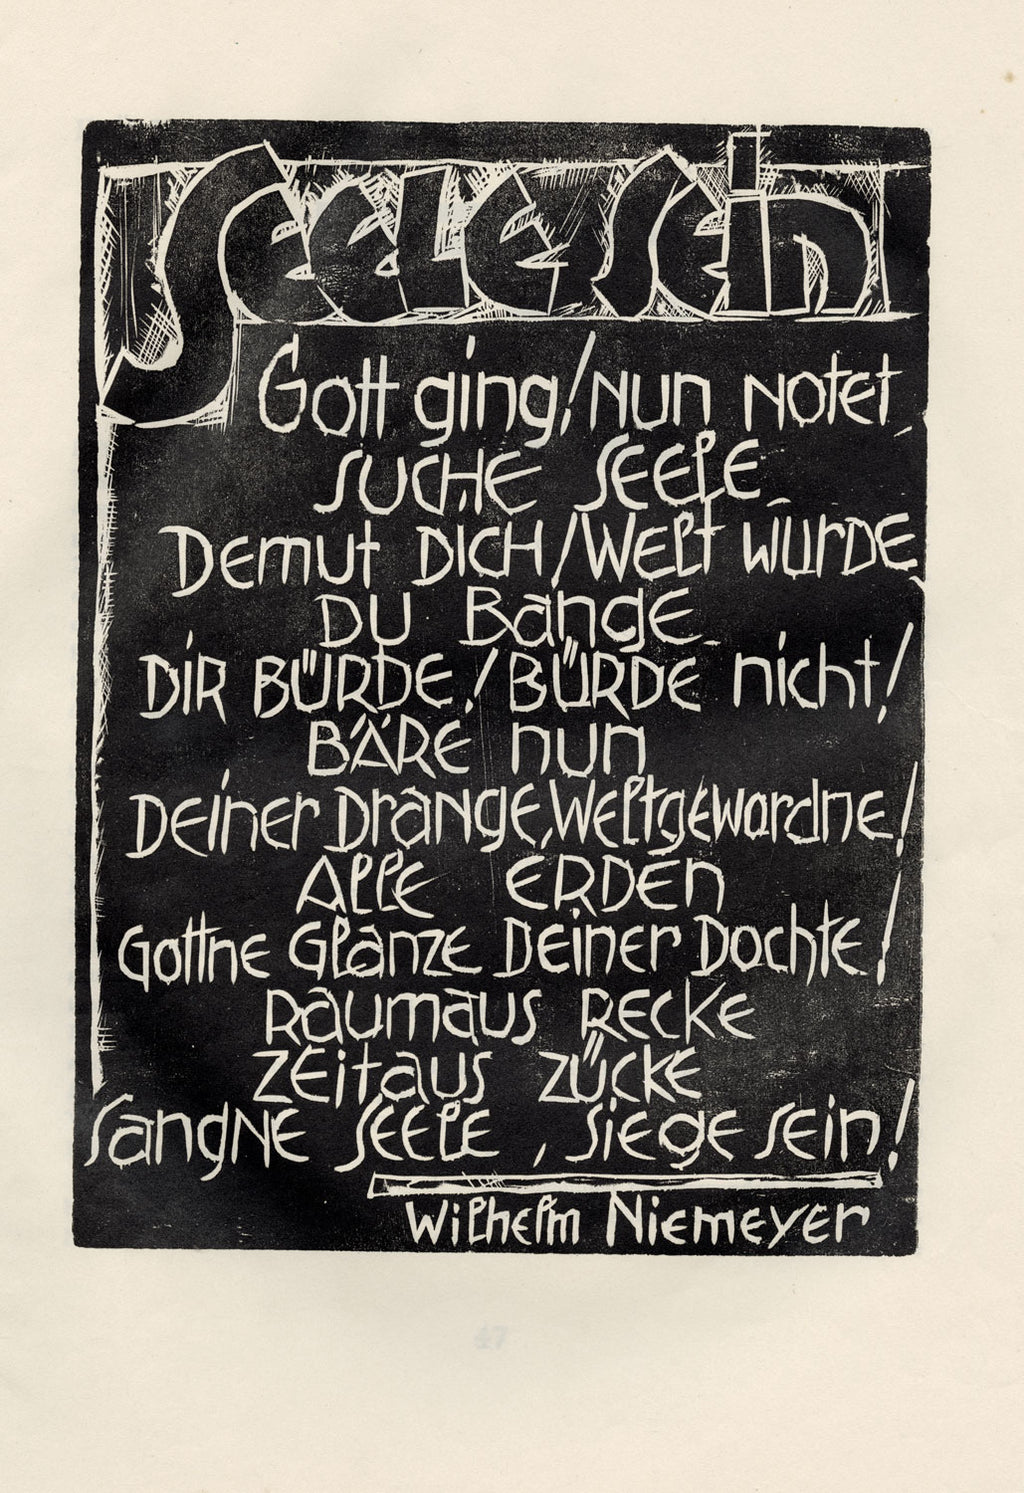 Seelesein
Gott ging! Nun notet
Suche Seele
Demut Dich / Welt würde
Du Bange
Dir Bürde! Bürde nicht!
Bäre nun
Deiner Drange, Weltgewordne!
Alle Erden
Gottne Glanze Deiner Dochte!
Raumaus Recke
Zeitaus zücke
Sangne Seele, Siege sein!
Wilhelm Niemeyer
47